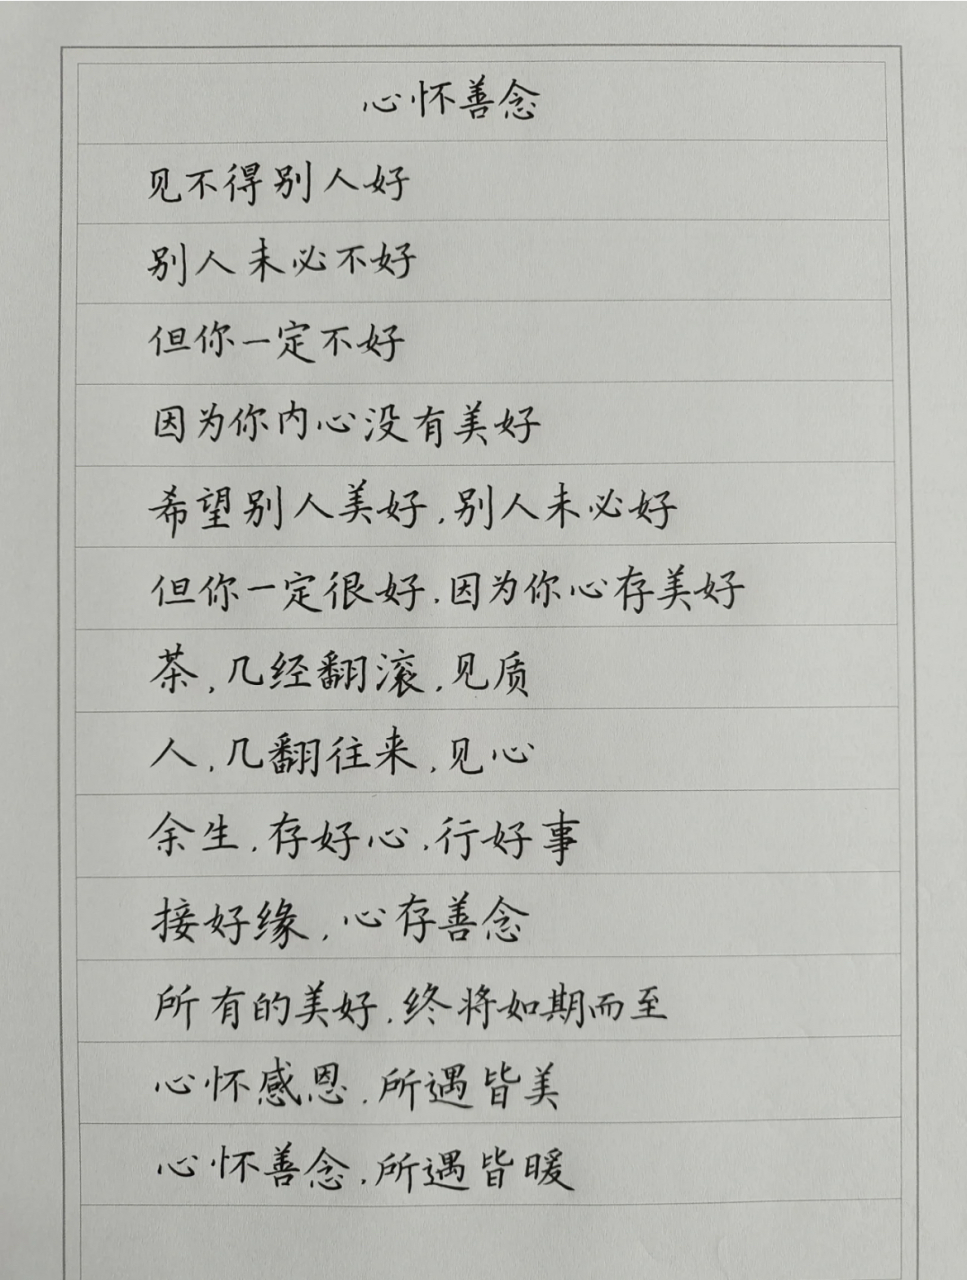 心怀善念
见不得别人好
别人未必不好
但你一定不好
因为你内心没有美好
希望别人美好,别人未必好
但你一定很好,因为你心存美好
茶,几经翻滚,见质
人,几翻往来,见心
余生,存好心,行好事
接好缘,心存善念
所有的美好,终将如期而至
心怀感恩,所遇皆美
心怀善念,所遇皆暖